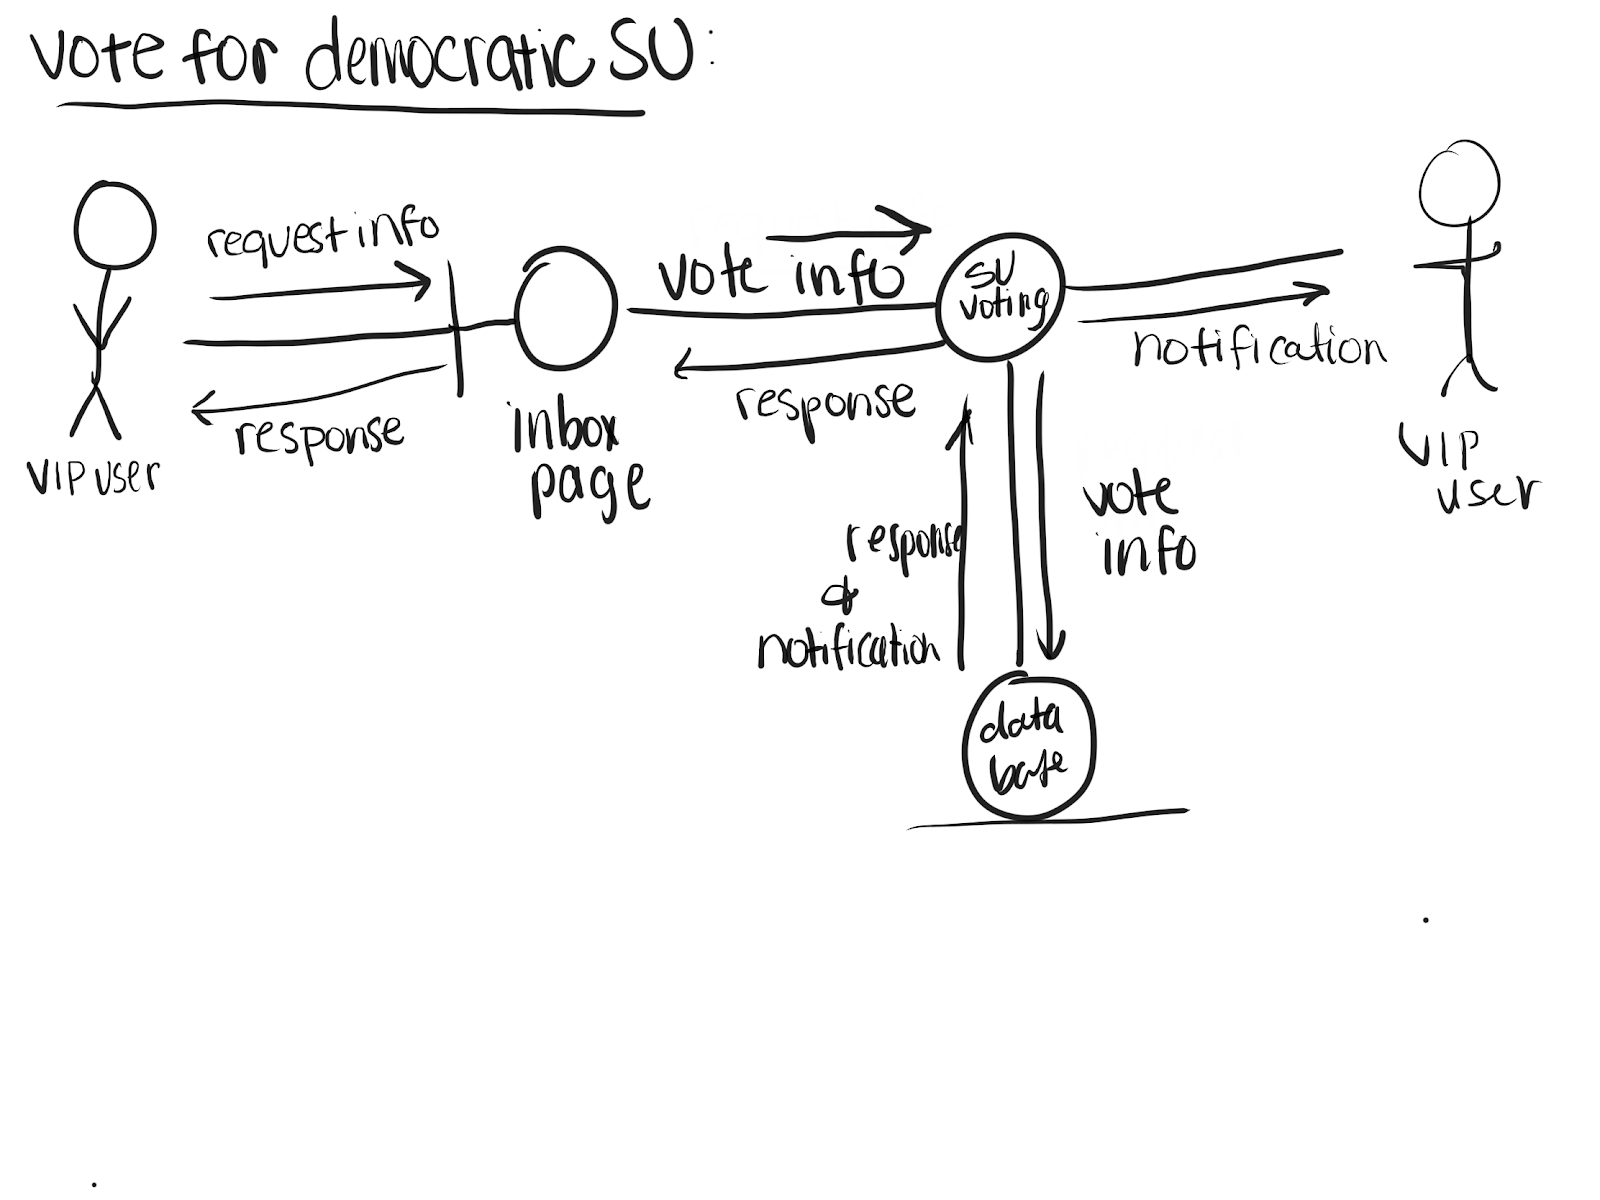 vote for democratic SU:
request info
response
VIP user
inbox
page
vote info
response
SU
voting
notification
VIP
user
response
&
notification
vote
info
data
base